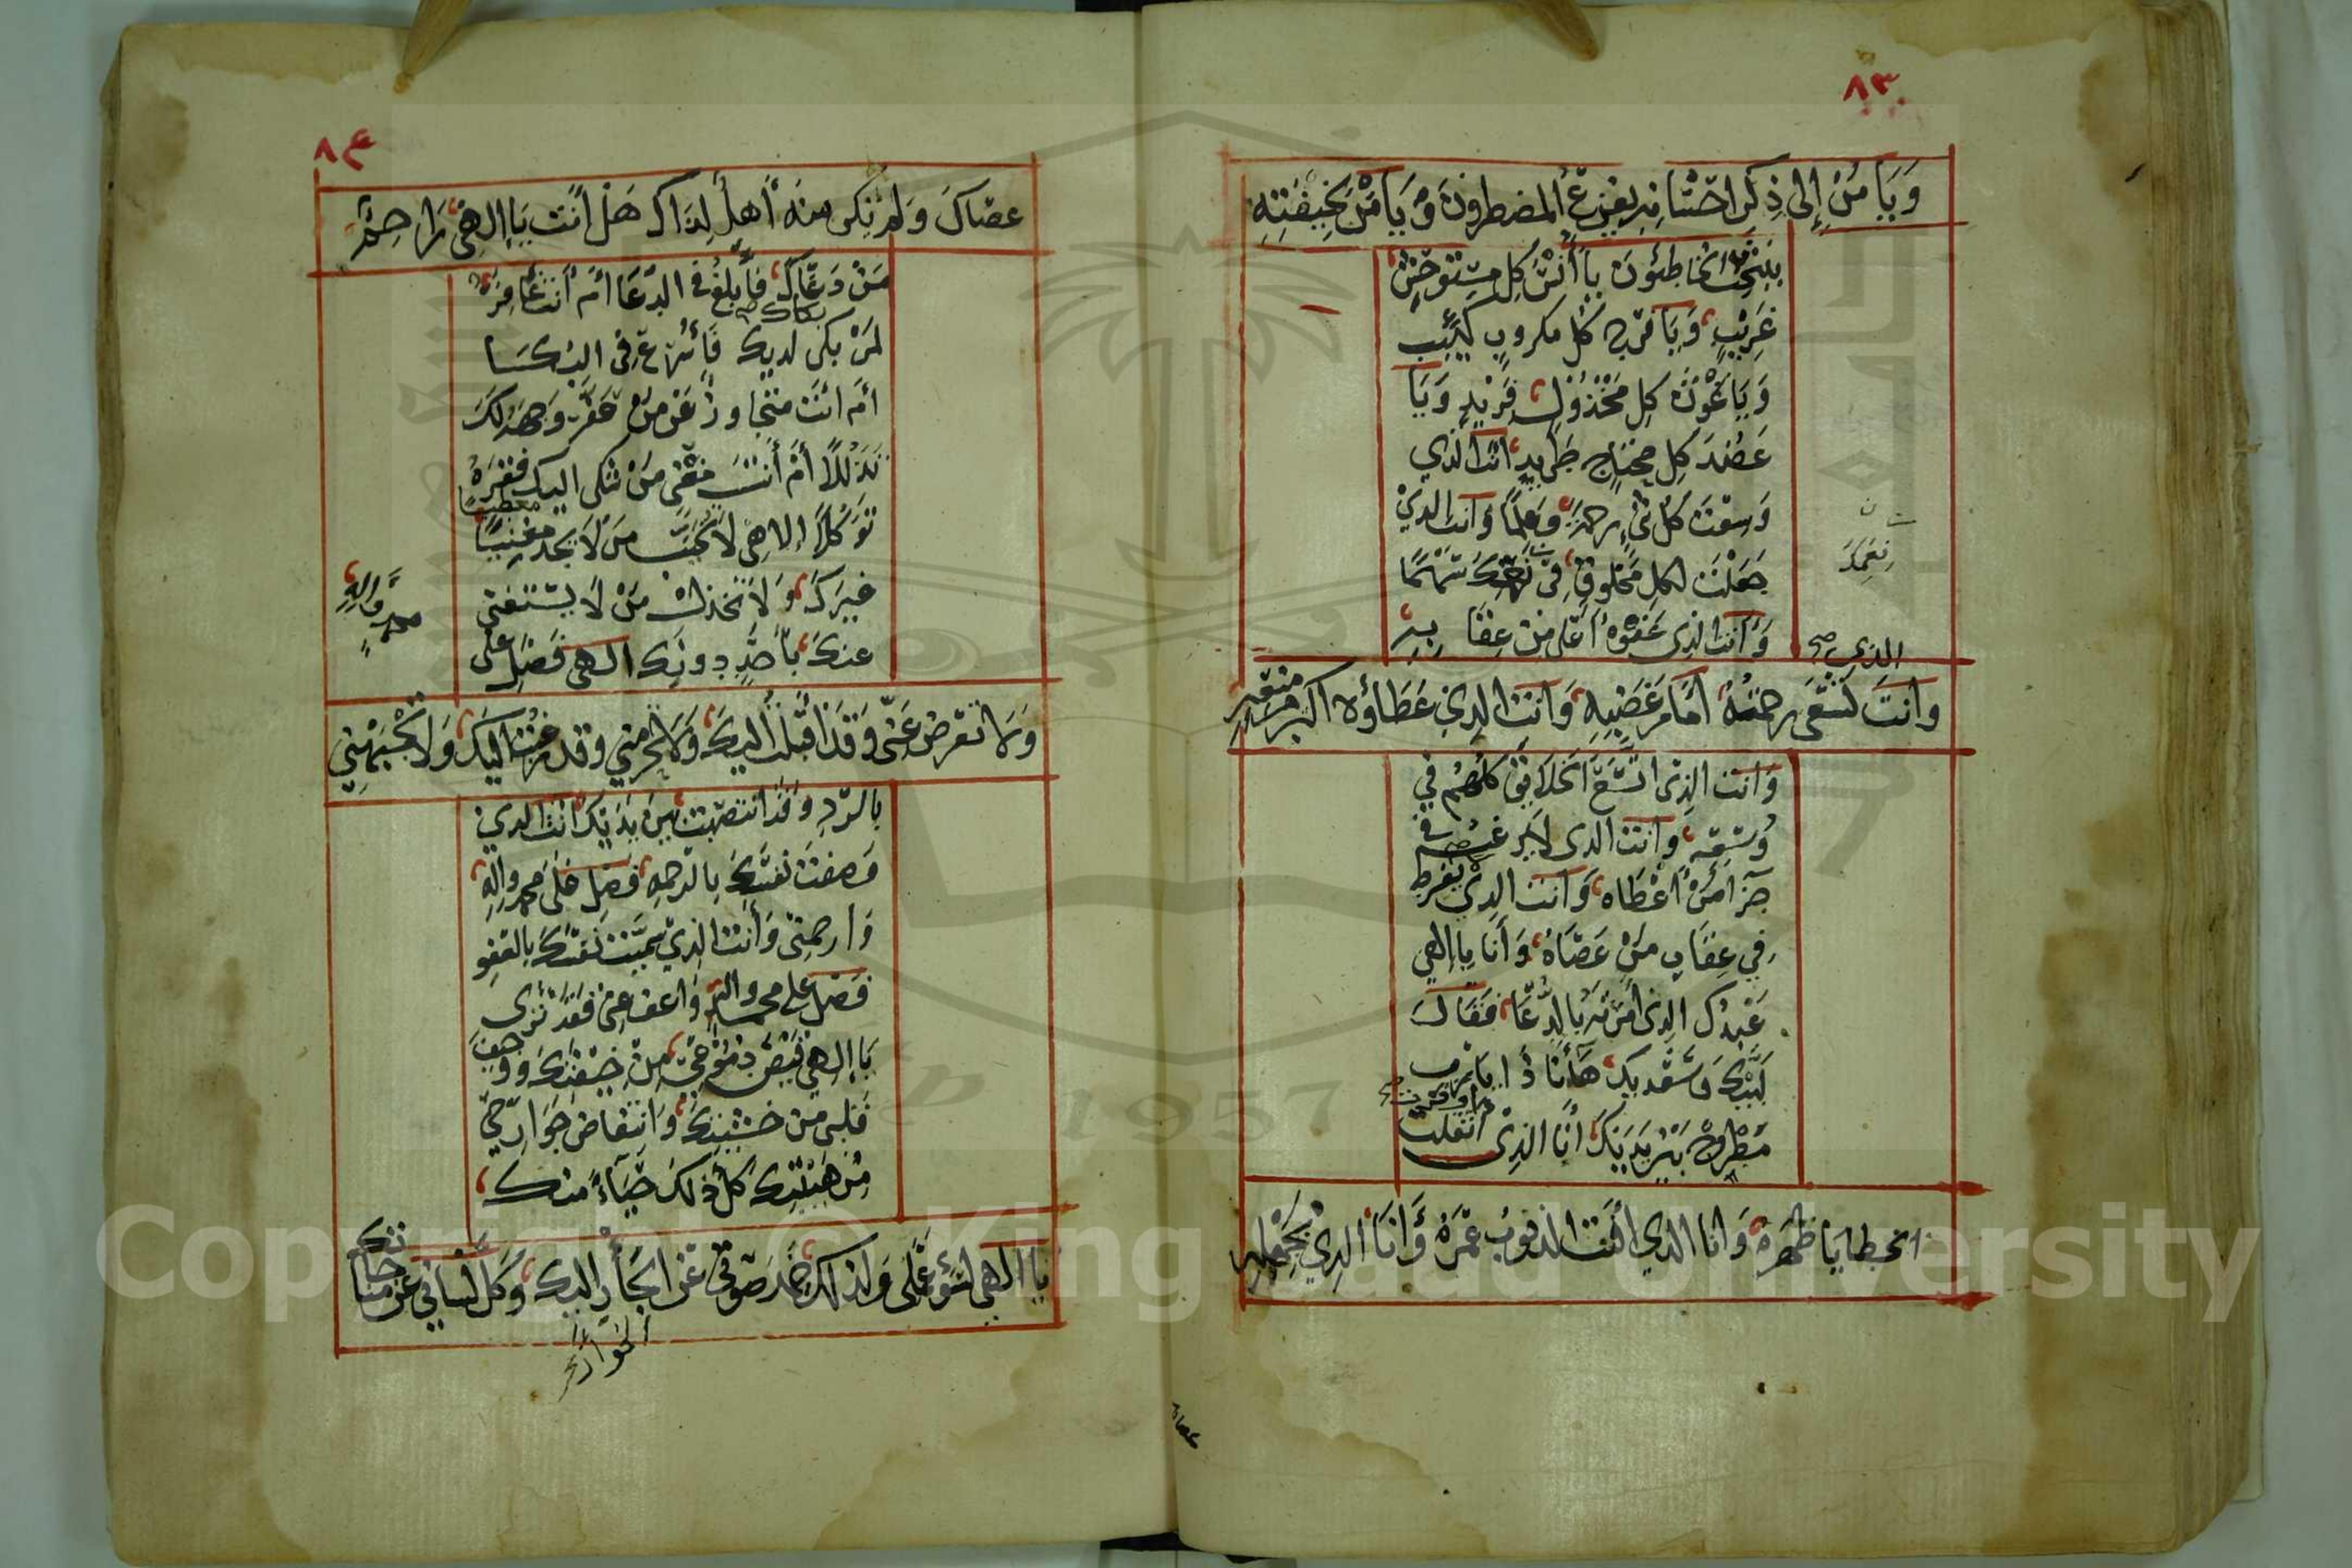 ٨٣
وَيَا مَنْ إِلى ذِكْرِ احْسَانِهِ يَفْزَعُ المضطرونَ وَيَا مَنْ لِخِيفَتِهِ
يَنْتَحِبُ الخاطئونَ يا أُنْسَ كلِ مستوحِشٍ
غَرِيْبٍ وَيَا فَرَجَ كُلِ مكروبٍ كَئِيْبٍ
وَيَا غَوْثَ كلِ مَخْذُوْلٍ فَرِيْدٍ وَيَا
عَضُدَ كلِ محتاجٍ طَرِيدٍ انتَ الذي
وَسِعْتَ كُلَ شيْءٍ رحمةً وعِلمًا وَانت الذيْ
جَعَلْتَ لكلِ مَخْلُوقٍ فِي نِعَمِكَ سَهْمًا
نِعَمِكَ
وَأنت الذي عَفْوُهُ أعْلى مِن عِقَابِهِ
الذي صح
وَانتَ تَسْعَى رحمَتُهُ أمَامَ غَضَبِهِ وَانت الذِي عَطَاؤُه اكثر مِنْ مَنْعِهِ
وَانتَ الذِي اتَّسَعَ الخلايقُ كلُهُم في
وُسْعِهِ وَانتَ الذي لا يَرْغبُ في
جَزَا مَنْ أعْطَاه وَانت الذِيْ لا يُفْرِط
فِي عِقَابِ مَنْ عَصَاهُ وَأنَا يا إلهي
عَبْدُكَ الذِي أمَرْتَهُ بالدُّعَا فَقَالَ
لَبَّيْكَ وَسَعْديكَ هَا أنَا ذَا يا رب
مَطْروحٌ بَيْنَ يَدَيْكَ أنَا الذِي
أثقلت
الخطايا ظَهْرَهُ وَانا الذي افنت الذنوبُ عُمْرَهُ وَأنَا الذِيْ بجَهْلِهِ
عصاك
٨٤
عصَاكَ وَلم تكن منهُ أهلاً لِذَاكَ هَل أنتَ يَا إلهِي رَاحِمٌ
مَنْ دَعَاكَ فأبلغُ في الدُّعَا أم أنتَ غَافِرٌ
بكاك
لِمَنْ بكى لديك فَأُسْرِعُ في البُكَا
أم انتَ متجاوزٌ عَن مَن عَفَّرَ وَجهَهُ لكَ
تَذَلُلاً أم أنتَ مغْنِي مَنْ شكى اليك فَقْرَهُ
تَوَكُلاً إلاهِي لَا تُخَيِّبْ مَن لَا يَجد مُعْطِيًا
غيرَكَ وَلَا تخذل مَنْ لَا يستغنى
عنكَ بأحَدٍ دونك الهي فَصَلِ على
محمدٍ وَالِهِ
وَلَا تعْرضْ عَنّى وَقَدْ أقبلتُ اليكَ وَلَا تحرمني وقد رغبتُ اليكَ وَلا تجْبَهْنِي
بالرّدِ وَقَدْ انتصَبتُ بينَ يَدَيْكَ أنتَ الذي
وَصفتَ نفسَكَ بالرحمةِ فَصَلِ عَلَى محمد والِهِ
وَارحمنِي وَأنتَ الذِي سَمَّيْتَ نَفْسَكَ بالعَفْوِ
فَصَل على محمد والِهِ وَاعف عنِي فَقَد تَرَى
يَا إلهِي فَيْضَ دمُوْعِي مِنْ خِيفَتِكَ وَوَجِيْبَ
قلبِي من خَشْيَتِكَ وَانتقاضَ جَوَارِحِي
مِن هَيْبَتِكَ كلُ ذلكَ حَيَاءً منكَ
يا الهي لسوءِ عَمَلى وَلذاكَ خَمَدَ صَوْتى عَن الجَأْرِ اليك وَكلَّ لسَانِي عَن مُنَاجَاتِكَ